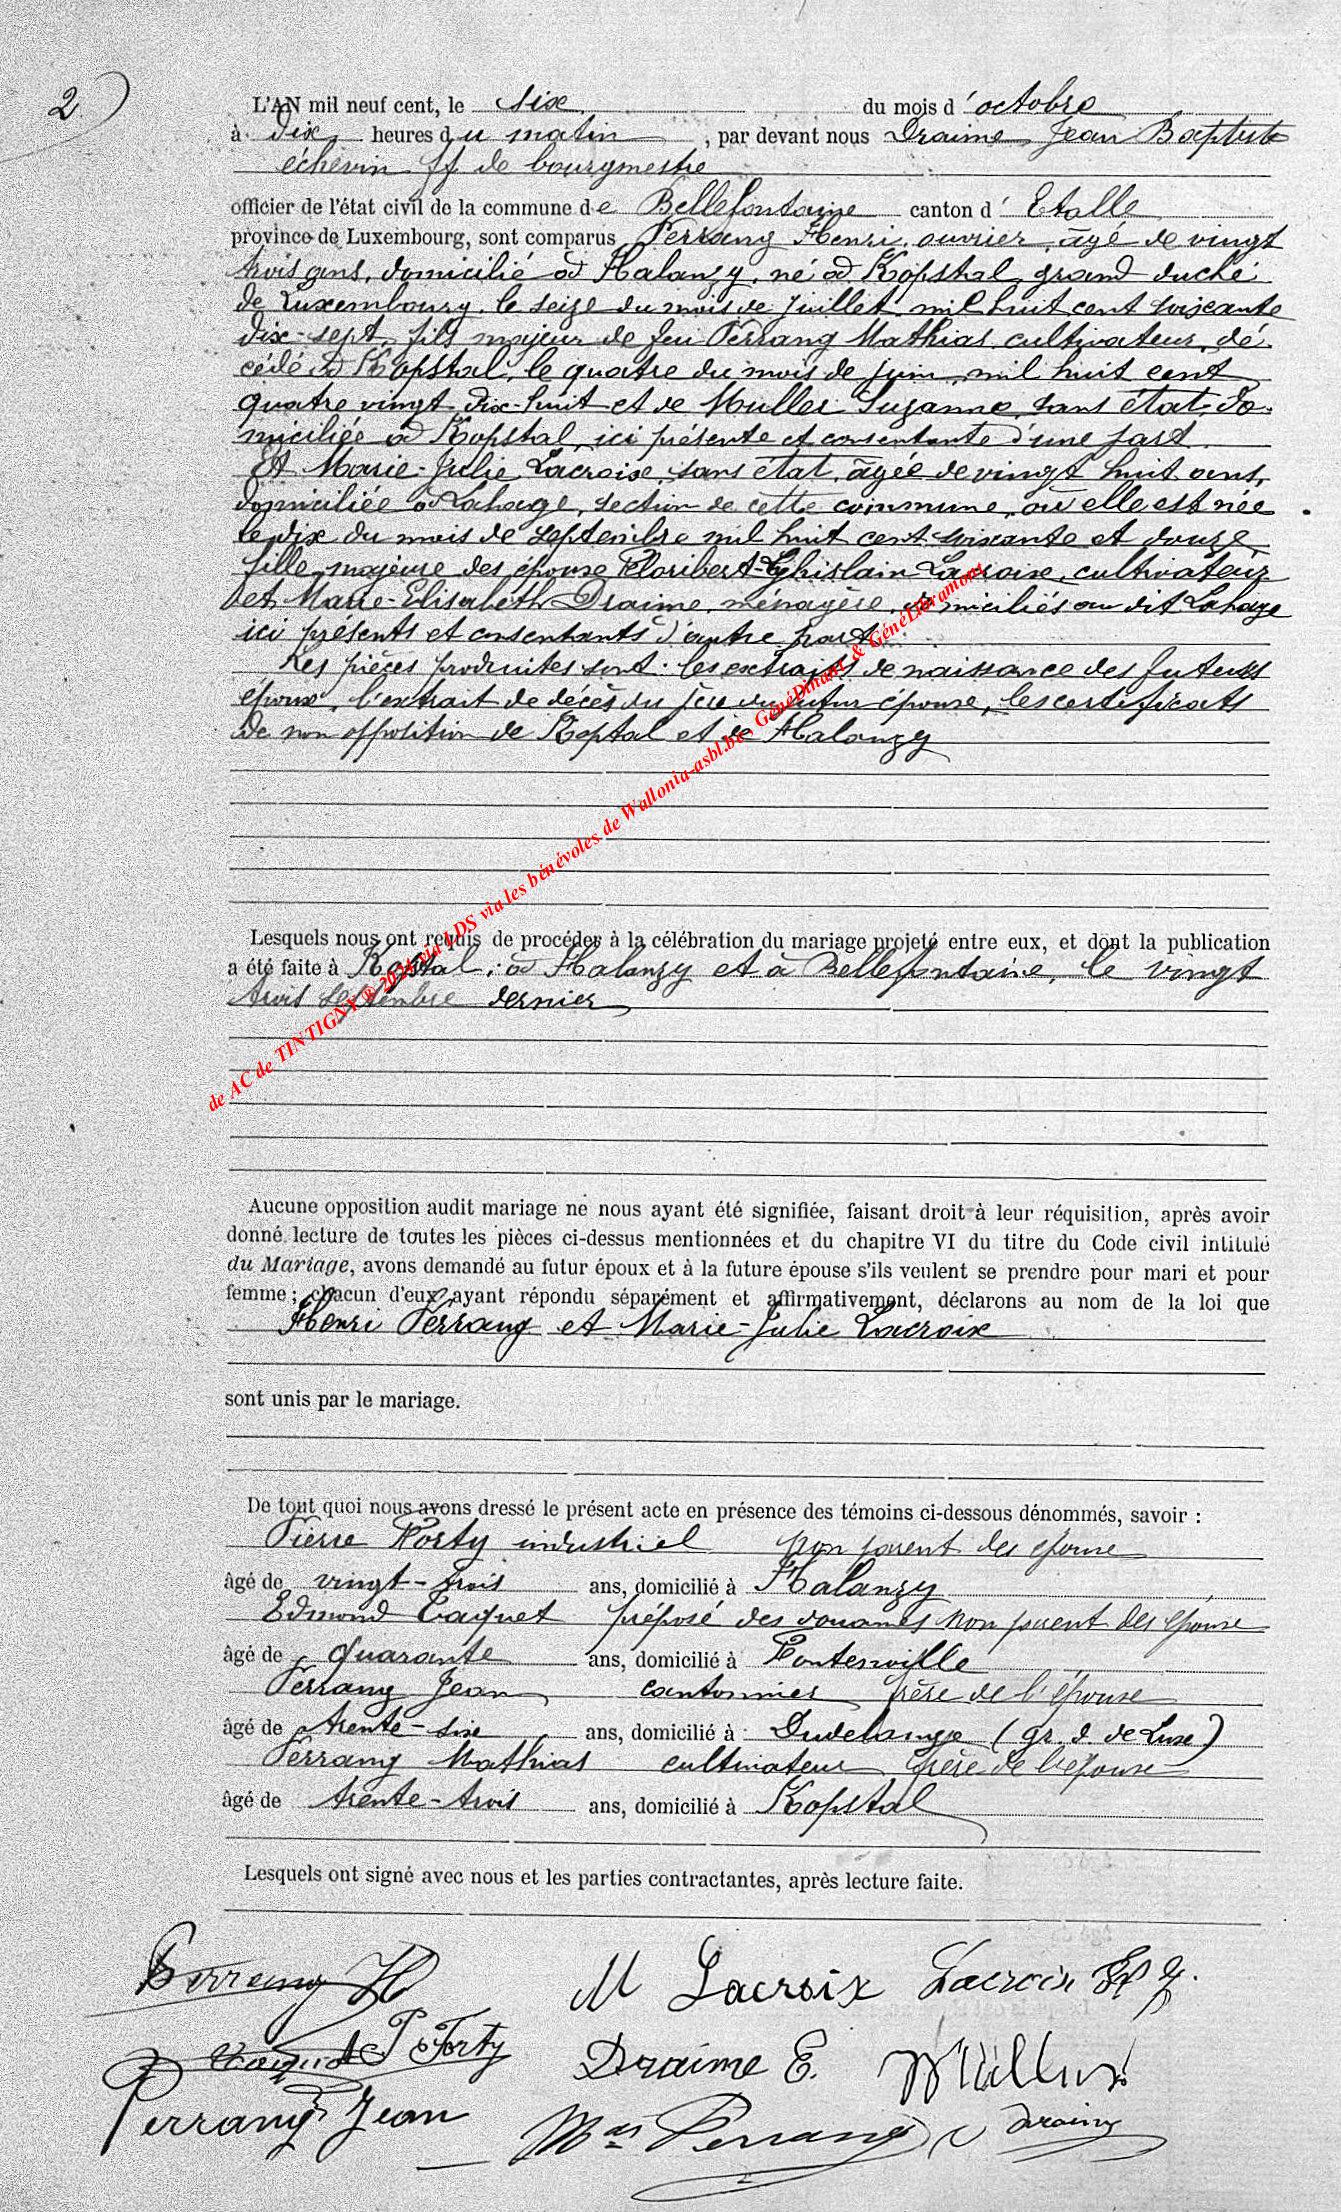 2
L'AN mil neuf cent, le six du mois d'octobre
à dix heures du matin, par devant nous Draime Jean Baptiste
échevin ff de bourgmestre
officier de l'état civil de la commune de Bellefontaine canton d'Etalle
province de Luxembourg, sont comparus Perrang Henri, ouvrier, âgé de vingt
trois ans, domicilié à Halanzy, né à Kopstal, grand duché
de Luxembourg, le seize du mois de juillet mil huit cent soixante
dix-sept, fils majeur de feu Perrang Mathias, cultivateur, dé-
cédé à Kopstal, le quatre du mois de juin, mil huit cent
quatre vingt dix-huit et de Muller Suzanne, sans état, do-
miciliée à Kopstal, ici présente et consentante d'une part.
Et Marie-Julie Lacroix, sans état, âgée de vingt huit ans,
domiciliée à Lahage, section de cette commune, où elle est née
le dix du mois de septembre mil huit cent soixante et douze,
fille majeure des époux Floribert-Ghislain Lacroix, cultivateur
et Marie-Elisabeth Draime, ménagère, domiciliés au dit Lahage
ici présents et consentants d'autre part.
Les pièces produites sont: les extraits de naissance des futurs
époux, l'extrait de décès du père du futur époux, les certificats
de non opposition de Koptal et de Halanzy
Lesquels nous ont requis de procéder à la célébration du mariage projeté entre eux, et dont la publication
a été faite à Kopstal, à Halanzy et à Bellefontaine, le vingt
trois septembre dernier
de AC de TINTIGNY ® 2024 via LDS via les bénévoles de Wallonia-asbl.be, GénéDinant & GénéLibramont
Aucune opposition audit mariage ne nous ayant été signifiée, faisant droit à leur réquisition, après avoir
donné lecture de toutes les pièces ci-dessus mentionnées et du chapitre VI du titre du Code civil intitulé
du Mariage, avons demandé au futur époux et à la future épouse s'ils veulent se prendre pour mari et pour
femme; chacun d'eux ayant répondu séparément et affirmativement, déclarons au nom de la loi que
Henri Perrang et Marie-Julie Lacroix
sont unis par le mariage.
De tout quoi nous avons dressé le présent acte en présence des témoins ci-dessous dénommés, savoir :
Pierre Forty industriel non parent des époux
âgé de vingt-trois ans, domicilié à Halanzy
Edmond Taquet préposé des douanes non parent des époux
âgé de quarante ans, domicilié à Fontenoille
Perrang Jean cantonnier frère de l'époux
âgé de trente-six ans, domicilié à Dudelange (gr. d. de Lux)
Perrang Mathias cultivateur frère de l'époux
âgé de trente-trois ans, domicilié à Kopstal
Lesquels ont signé avec nous et les parties contractantes, après lecture faite.
Perrang H M Lacroix Lacroix
P Forty Draime E. Müller
Perrang Jean Mas Perrang Draime